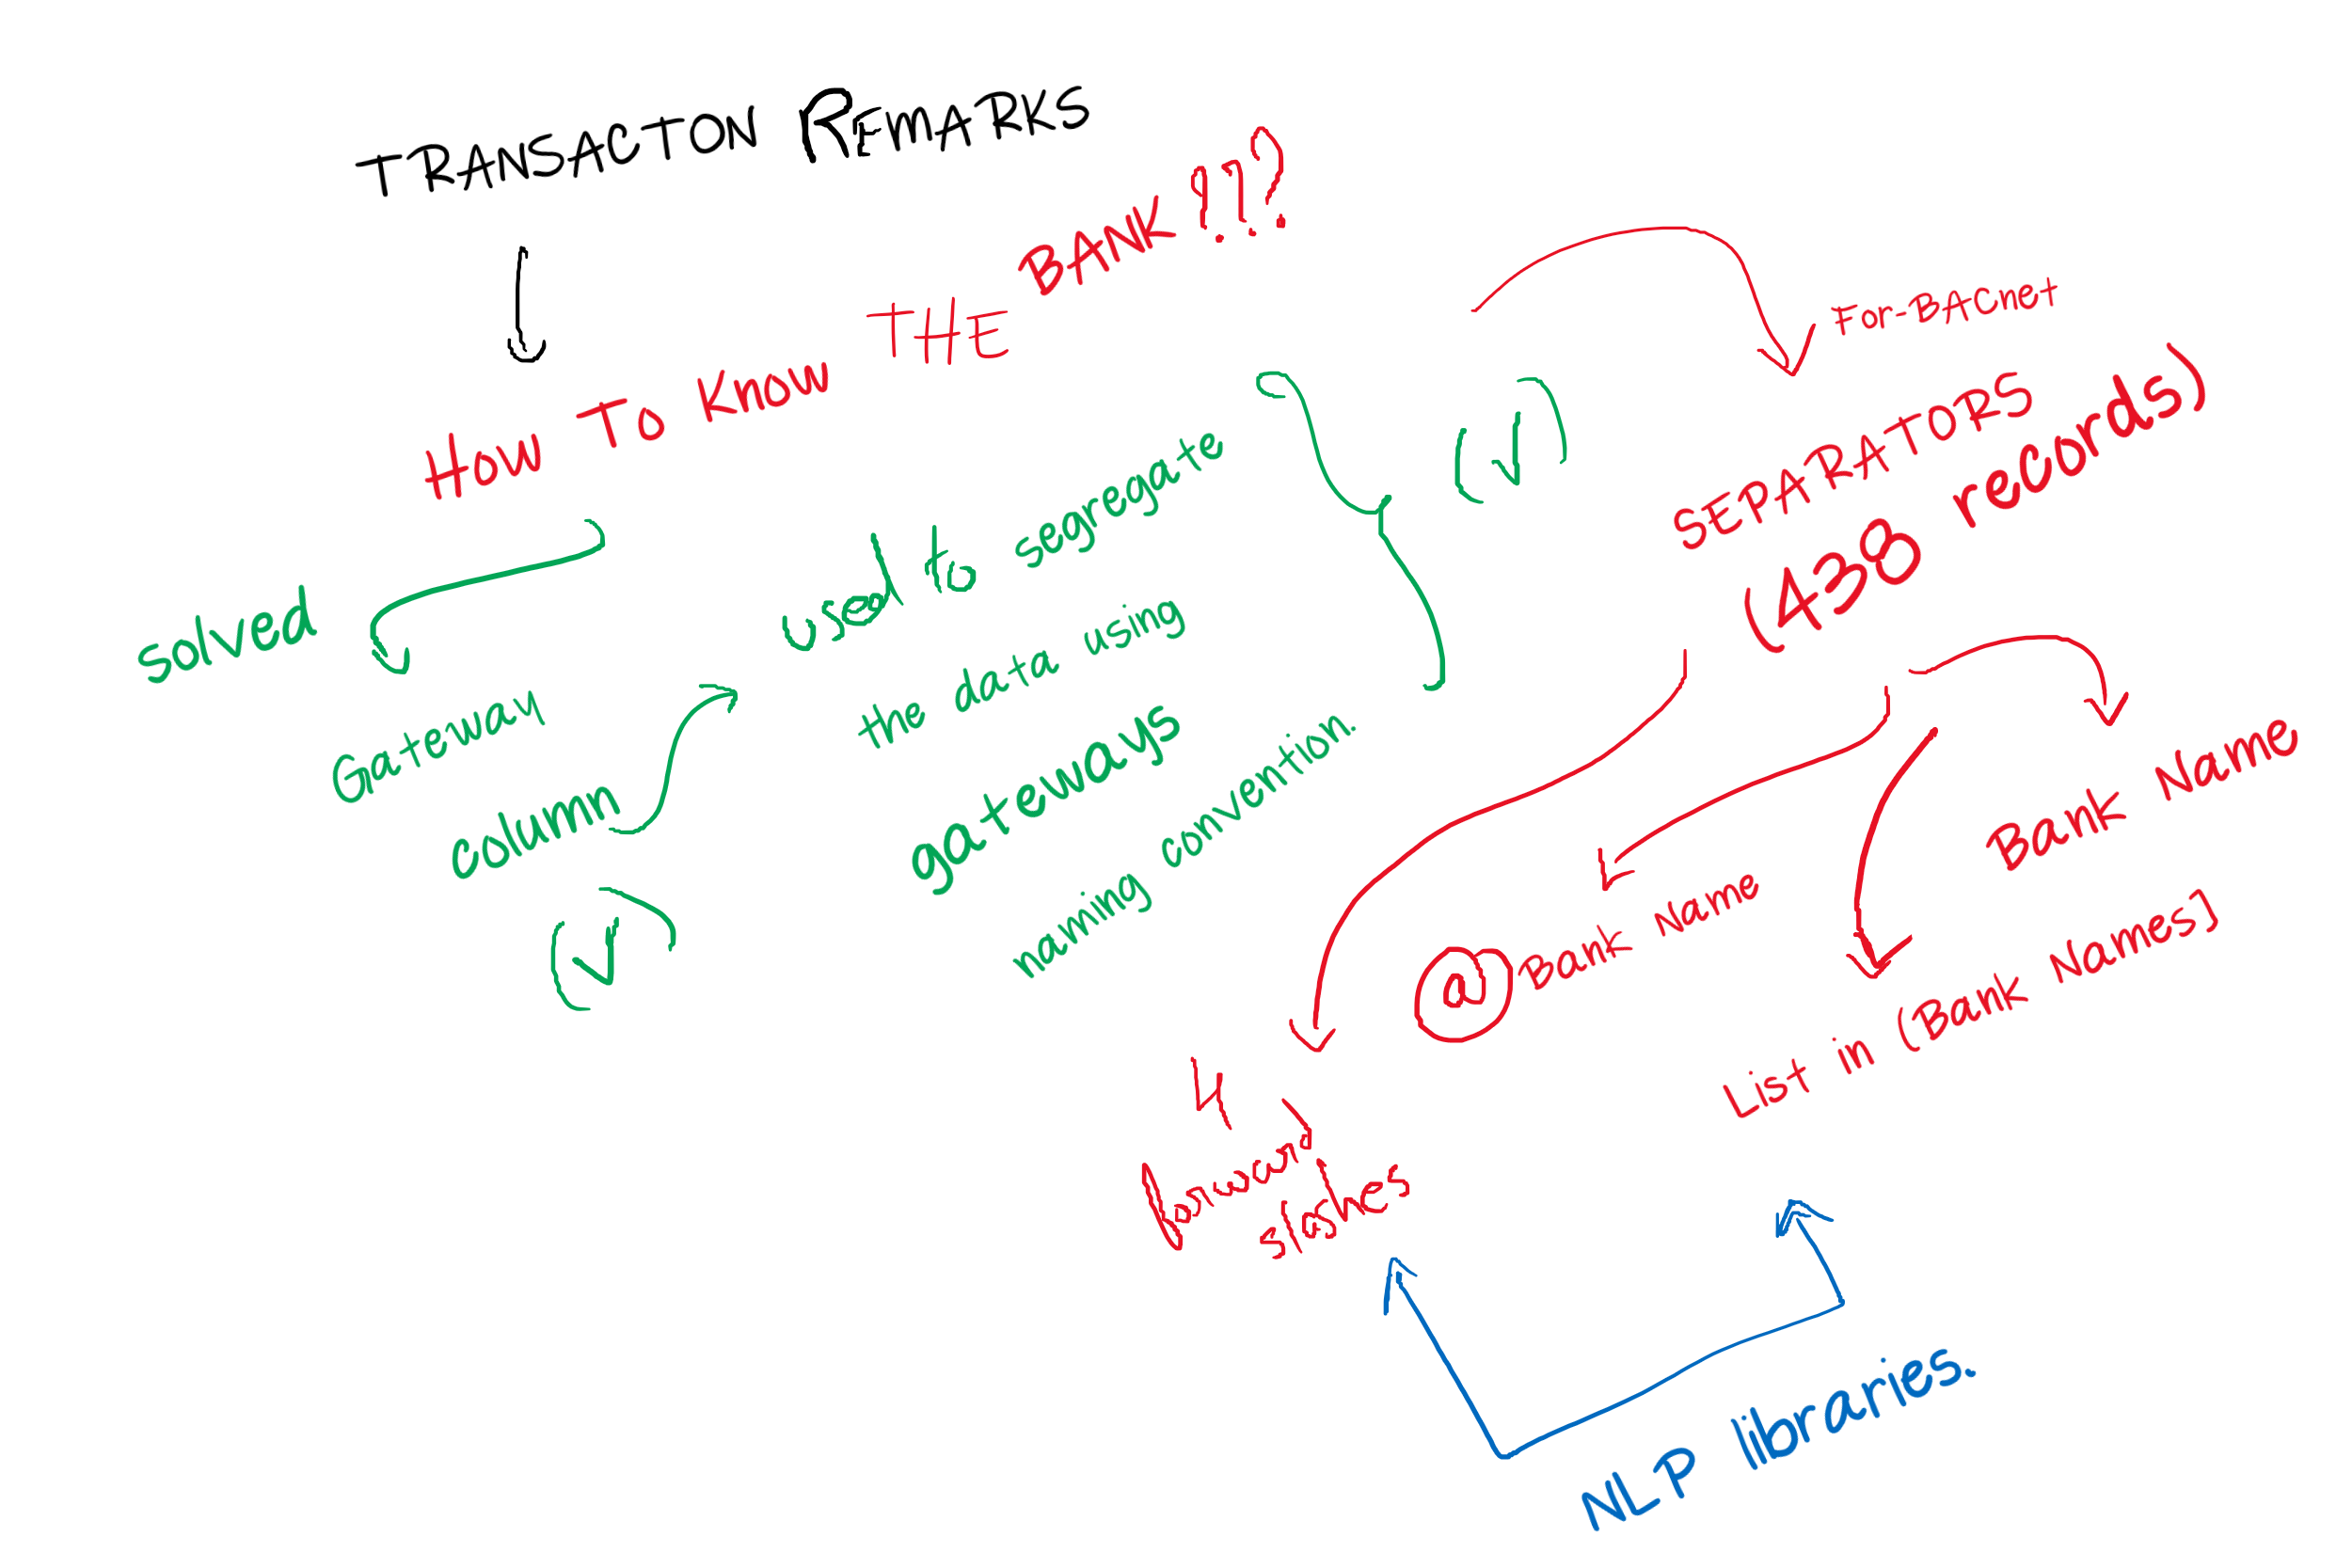 TRANSACTON REMARKS
How To Know THE BANK ???
solved
Gateway
column
(✓)
used to seggregate
the data using
gateways
naming convention.
(✓)
SEPARATORS
(438 records)
4
forward
slashes
@ Bank Name
Bank Name
List in (Bank Names)
NLP libraries.